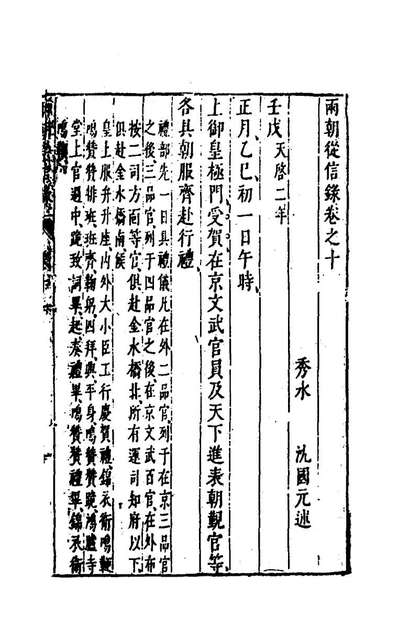 兩朝從信錄卷之十
秀水 沈國元述
壬戌天啓二年
正月乙巳初一日午時
上御皇極門受賀在京文武官員及天下進表朝覲官等
各具朝服齊赴行禮
禮部先一日具禮儀凡在外二品官列于在京三品官
之後三品官列于四品官之後在京文武百官在外布
按二司方面等官俱赴金水橋北所有運司知府以下
俱赴金水橋南候
皇上服弁升座內外大小臣工行慶賀禮錦衣衛鳴鞭
鳴贊贊排班班齊鞠躬四拜興平身鳴贊贊跪鴻臚寺
堂上官過中跪致詞畢起奏禮畢鳴贊贊禮畢錦衣衛
鳴鞭